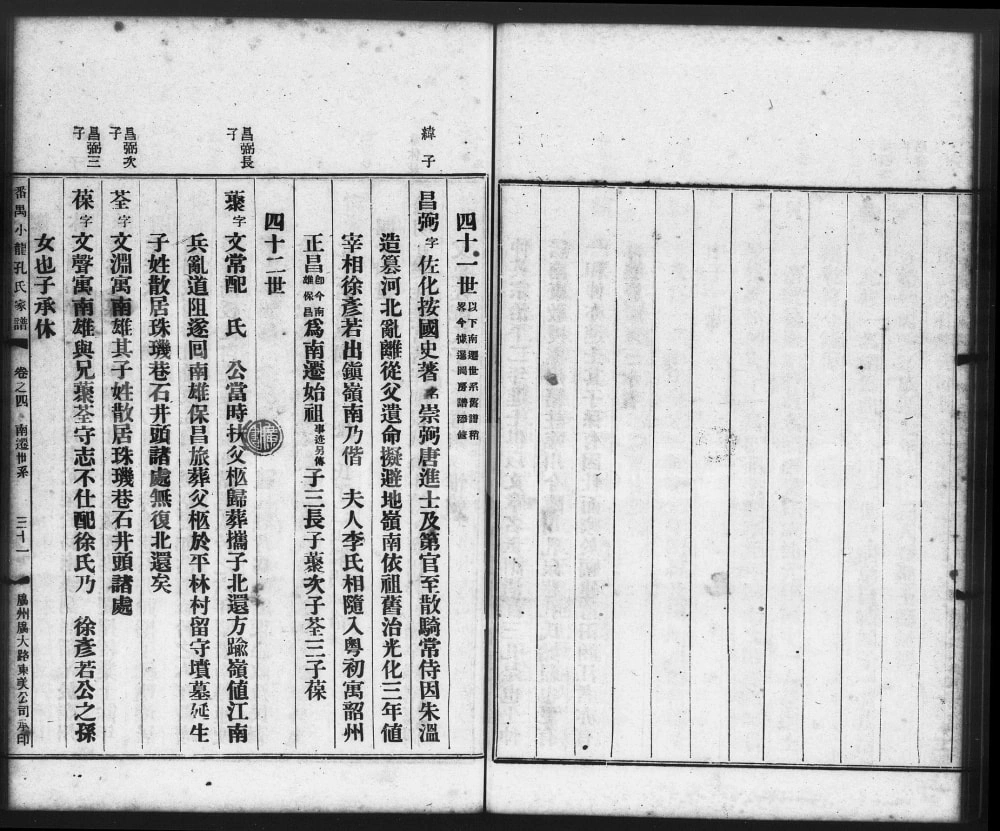 四十一世 以下南遷世系舊譜稍畧今據邏岡房譜添修
緯子
昌弼 字佐化按國史著名崇弼唐進士及第官至散騎常侍因朱溫
造篡河北亂離從父遺命擬避地嶺南依祖舊治光化三年値
宰相徐彥若出鎭嶺南乃偕 夫人李氏相隨入粤初寓韶州
正昌 卽今南雄保昌 爲南遷始祖 事迹另傳 子三長子蕖次子荃三子葆
四十二世
昌弼長子
蕖 字文常配 氏 公當時扶父柩歸葬攜子北還方踰嶺値江南
兵亂道阻遂回南雄保昌旅葬父柩於平林村留守墳墓延生
子姓散居珠璣巷石井頭諸處無復北還矣
昌弼次子
荃 字文淵寓南雄其子姓散居珠璣巷石井頭諸處
昌弼三子
葆 字文聲寓南雄與兄蕖荃守志不仕配徐氏乃 徐彥若公之孫
女也子承休
番禺小龍孔氏家譜 卷之四 南遷世系 三十一 廣州廣大路東英公司承印